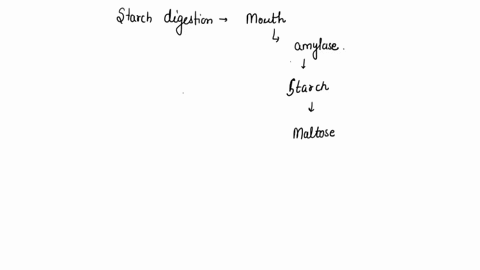 Starch digestion → Mouth
↳ amylase.
↓
Starch
↓
Maltose